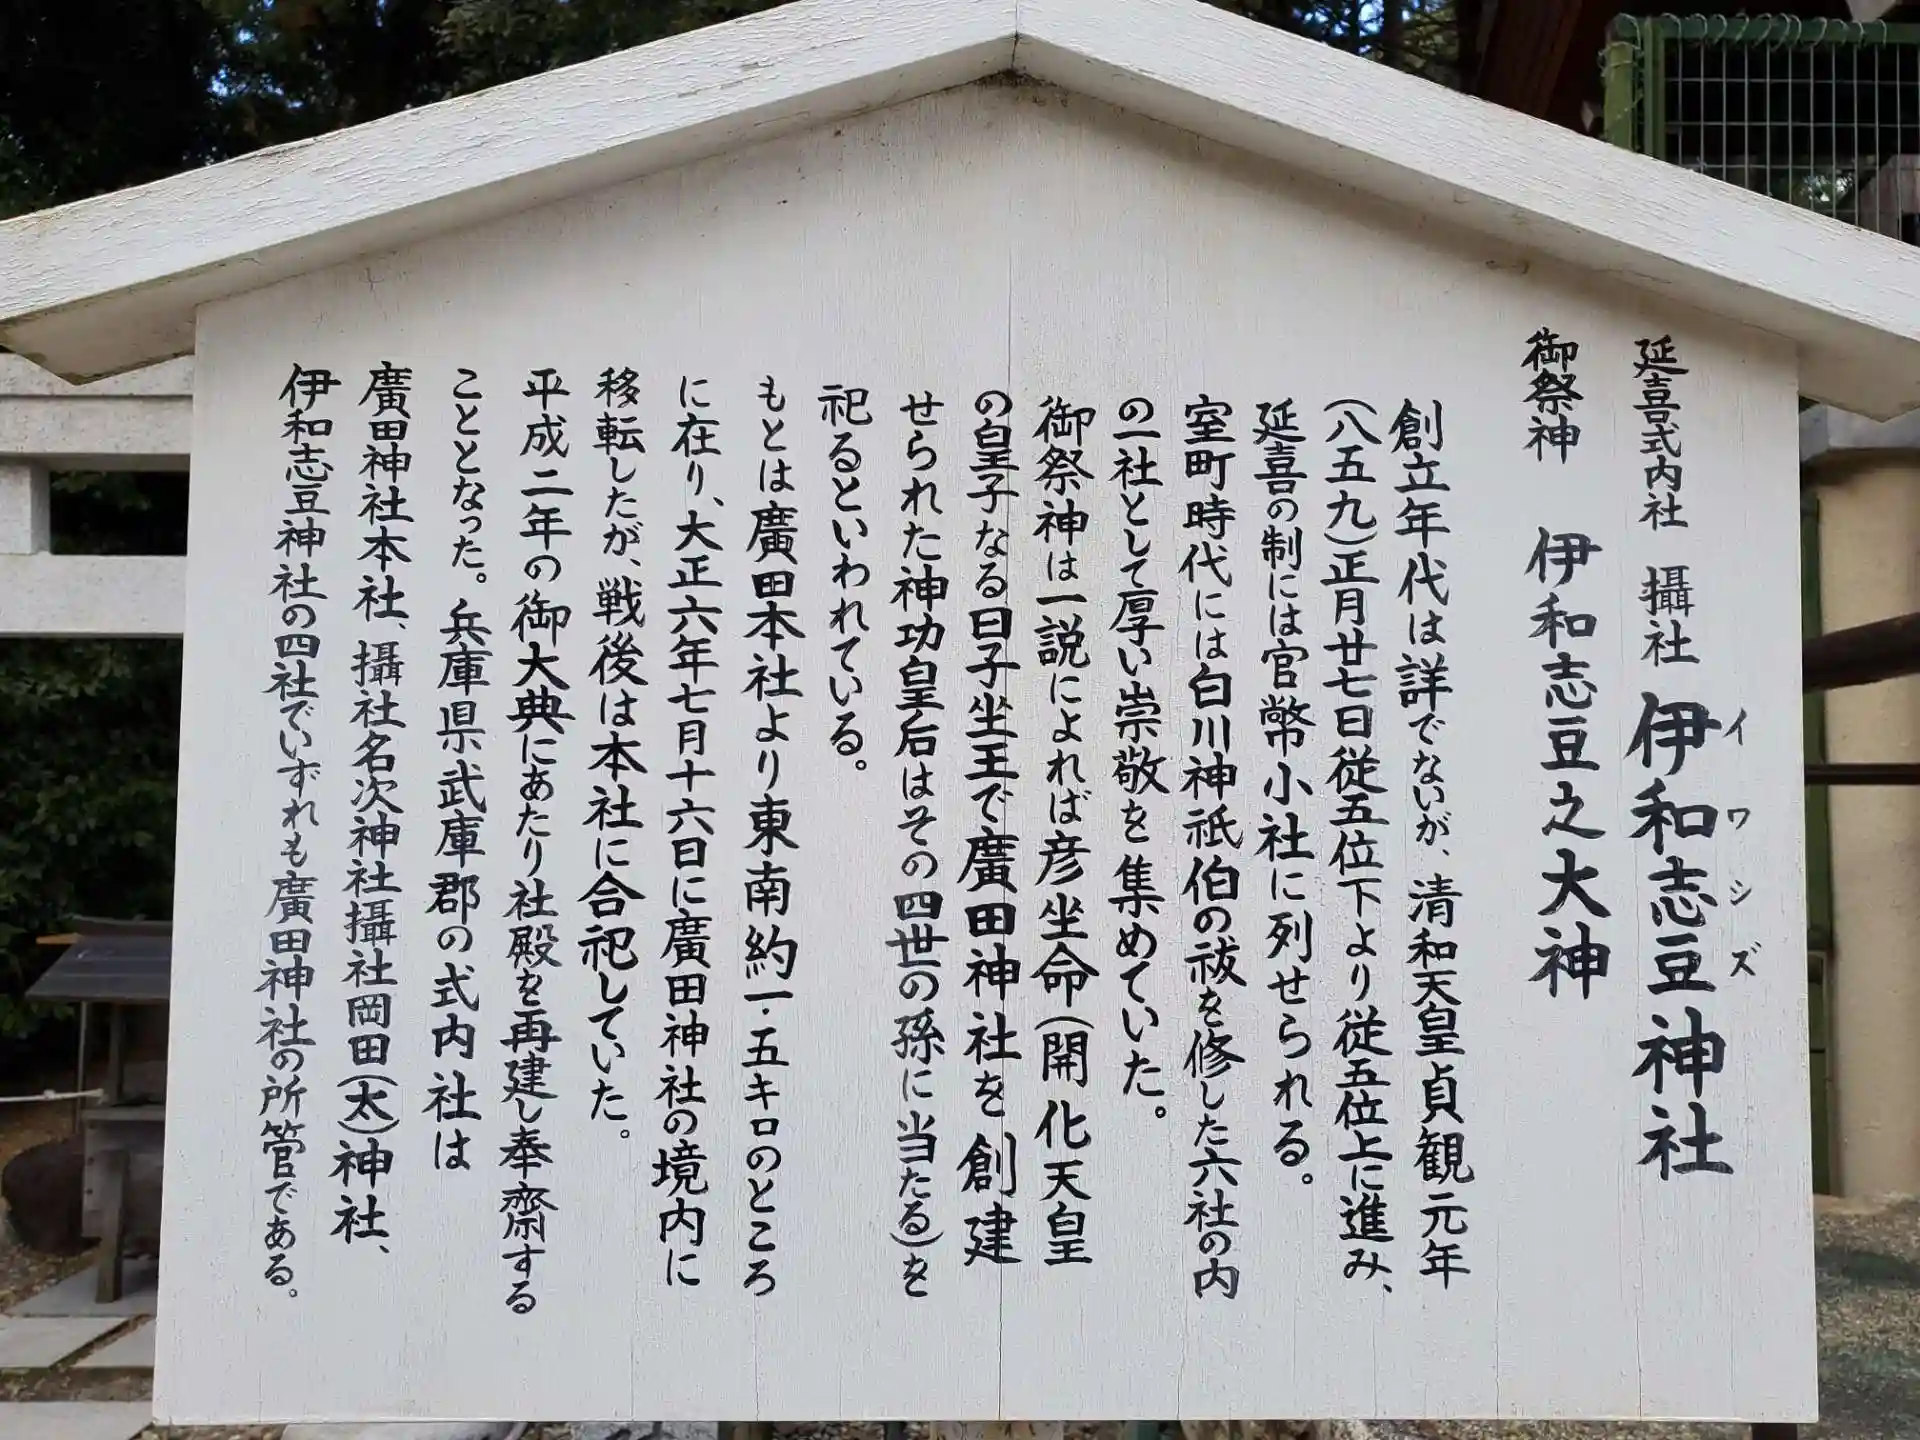 延喜式内社 攝社 伊和志豆神社
イワシズ
御祭神 伊和志豆之大神
創立年代は詳でないが、清和天皇貞観元年
(八五九)正月廿七日従五位下より従五位上に進み、
延喜の制には官幣小社に列せられる。
室町時代には白川神祇伯の祓を修した六社の内
の一社として厚い崇敬を集めていた。
御祭神は一説によれば彦坐命(開化天皇
の皇子なる日子坐王で廣田神社を創建
せられた神功皇后はその四世の孫に当たる)を
祀るといわれている。
もとは廣田本社より東南約一・五キロのところ
に在り、大正六年七月十六日に廣田神社の境内に
移転したが、戦後は本社に合祀していた。
平成二年の御大典にあたり社殿を再建し奉齋する
こととなった。兵庫県武庫郡の式内社は
廣田神社本社、攝社名次神社攝社岡田(太)神社、
伊和志豆神社の四社でいずれも廣田神社の所管である。